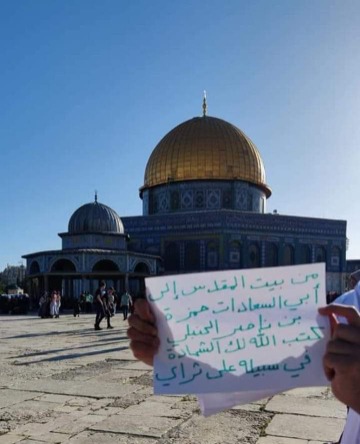 من بيت المقدس إلى
أبي السعادات حمزة
بن ناصر الحنبلي
كتب الله لك الشهادة
في سبيله على ثراي